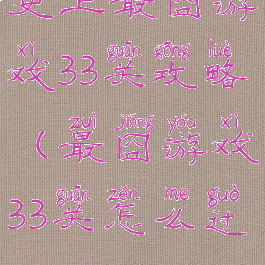 史上最囧游
xì guān gōng lüè
戏33关攻略
zuì jiǒng yóu xì
(最囧游戏
guān zěn me guò
33关怎么过